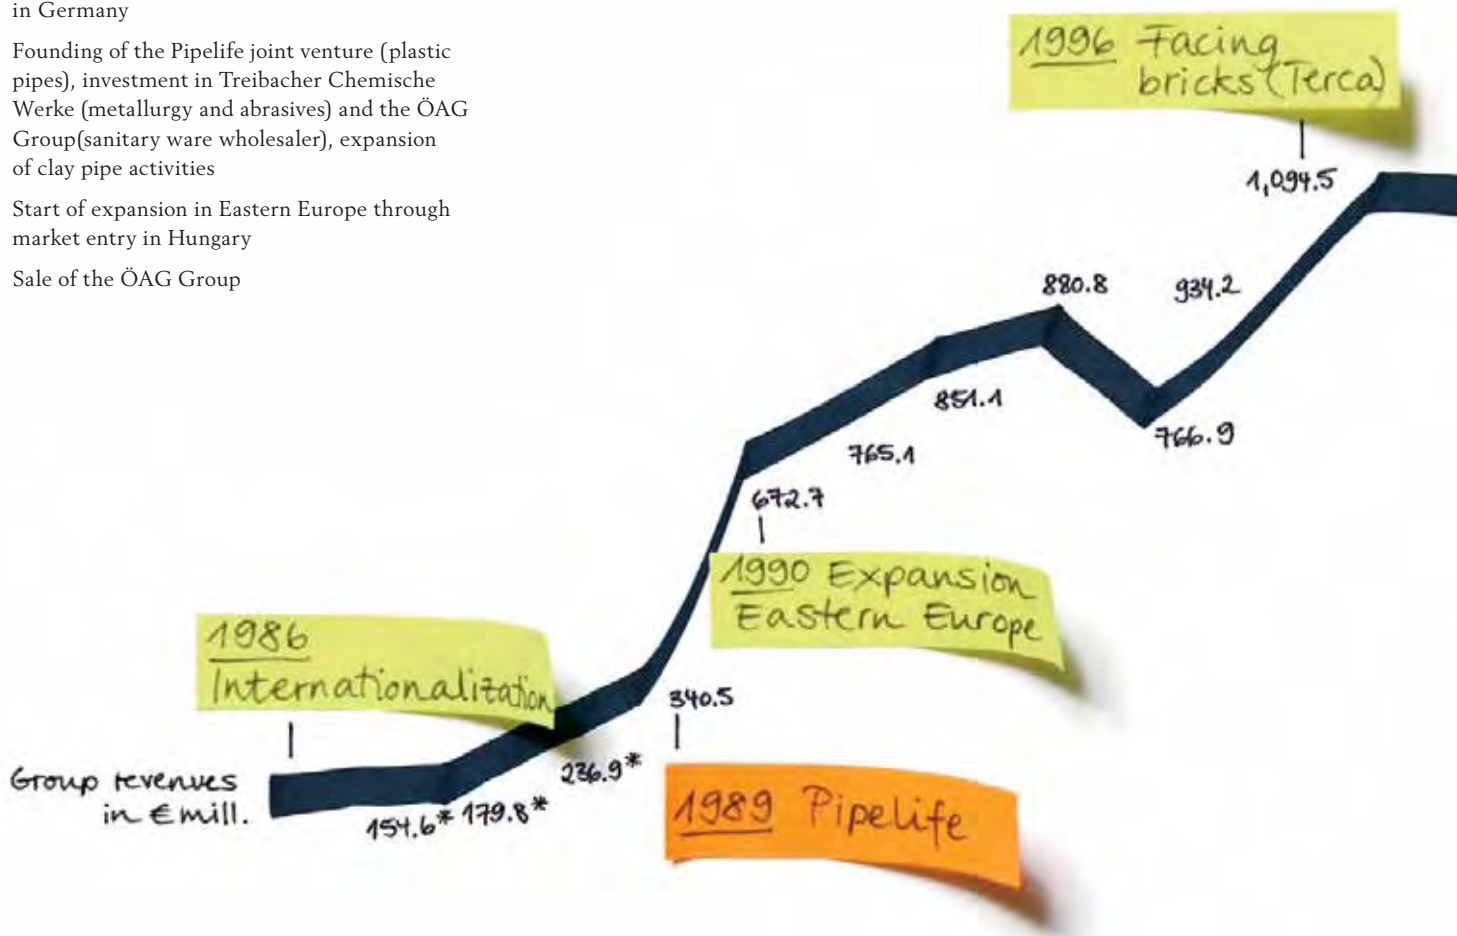 in Germany
Founding of the Pipelife joint venture (plastic
pipes), investment in Treibacher Chemische
Werke (metallurgy and abrasives) and the ÖAG
Group(sanitary ware wholesaler), expansion
of clay pipe activities
Start of expansion in Eastern Europe through
market entry in Hungary
Sale of the ÖAG Group
1996 Facing
bricks (Terca)
1,094.5
880.8
934.2
851.1
766.9
765.1
672.7
1990 Expansion
Eastern Europe
1986
Internationalization
340.5
236.9*
Group revenues
in € mill.
154.6*
179.8*
1989 Pipelife